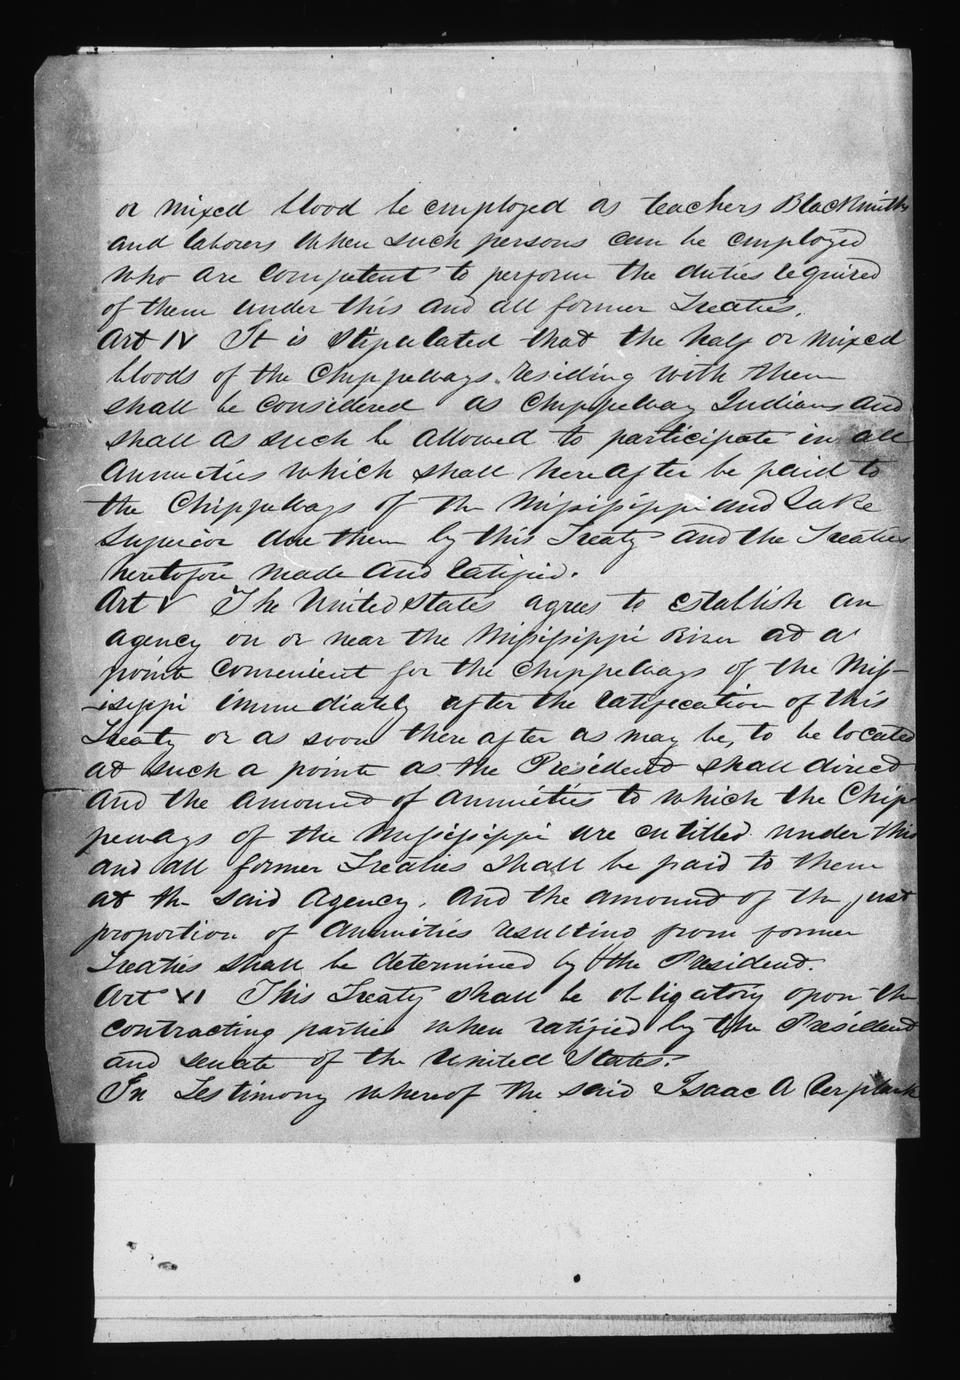 or mixed blood be employed as teachers Blacksmiths
and laborers when such persons can be employed
who are competent to perform the duties required
of them under this and all former Treaties.
Art IV It is stipulated that the half or mixed
bloods of the Chippeways residing with them
shall be considered as Chippeway Indians and
shall as such be allowed to participate in all
annuities which shall hereafter be paid to
the Chippeways of the Missisippi and Lake
Superior due them by this Treaty and the Treaties
heretofore made and ratified.
Art V The United States agrees to establish an
agency on or near the Missisippi River at a
point convenient for the Chippeways of the Miss-
-isippi immediately after the ratification of this
Treaty or as soon thereafter as may be, to be located
at such a point as the President shall direct
and the amount of annuities to which the Chip-
peways of the Missisippi are entitled under this
and all former Treaties shall be paid to them
at the said Agency. And the amount of the just
proportion of annuities resulting from former
Treaties shall be determined by the President.
Art VI This Treaty shall be obligatory upon the
contracting parties when ratified by the President
and senate of the United States.
In Testimony whereof the said Isaac A Verplank